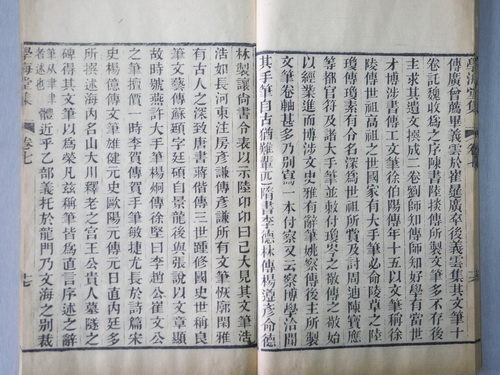 學海堂集
傳廣曾薦畢義雲於崔暹廣卒後義雲集其文筆十
卷託魏收為之序陳書陸傳所製文筆多不存後
主求其遺文撰成二卷劉師知傳師知好學有當世
才博涉書傳工文筆徐伯陽傳年十五以文筆稱徐
陵傳世祖高祖之世國家有大手筆必命陵草之陸
瓊傳瓊素有令名深為世祖所賞及討周迪陳寶應
等都官符及諸大手筆並敕付瓊岑之敬傳之敬始
以經業進而博涉文史雅有辭筆姚察傳後主所製
文筆卷軸甚多乃別寫一本付察又云察博學洽聞
其手筆自古猶難輩匹隋書李德林傳楊遵彥命德
林製讓尚書令表以示陸卬卬曰已大見其文筆浩
浩如長河東注房彥謙傳彥謙所有文筆恢廓閒雅
有古人之深致唐書蔣偕傳三世踵修國史世稱良
筆文藝傳蘇頲字廷碩自景龍後與張說以文章顯
故時號燕許大手筆楊炯傳徐堅曰李趙公崔文公
之筆擅價一時李賀傳賀手筆敏捷尤長於詩篇宋
史楊億傳文筆雄健元史歐陽元傳元日直內廷多
所撰述海內名山大川釋老之宮王公貴人墓隧之
碑得其文筆以為榮凡茲稱筆皆為直言序述之辭
筆从聿聿
者述也
體近乎乙部義託於龍門乃文海之別裁
學海堂集 卷七 十七